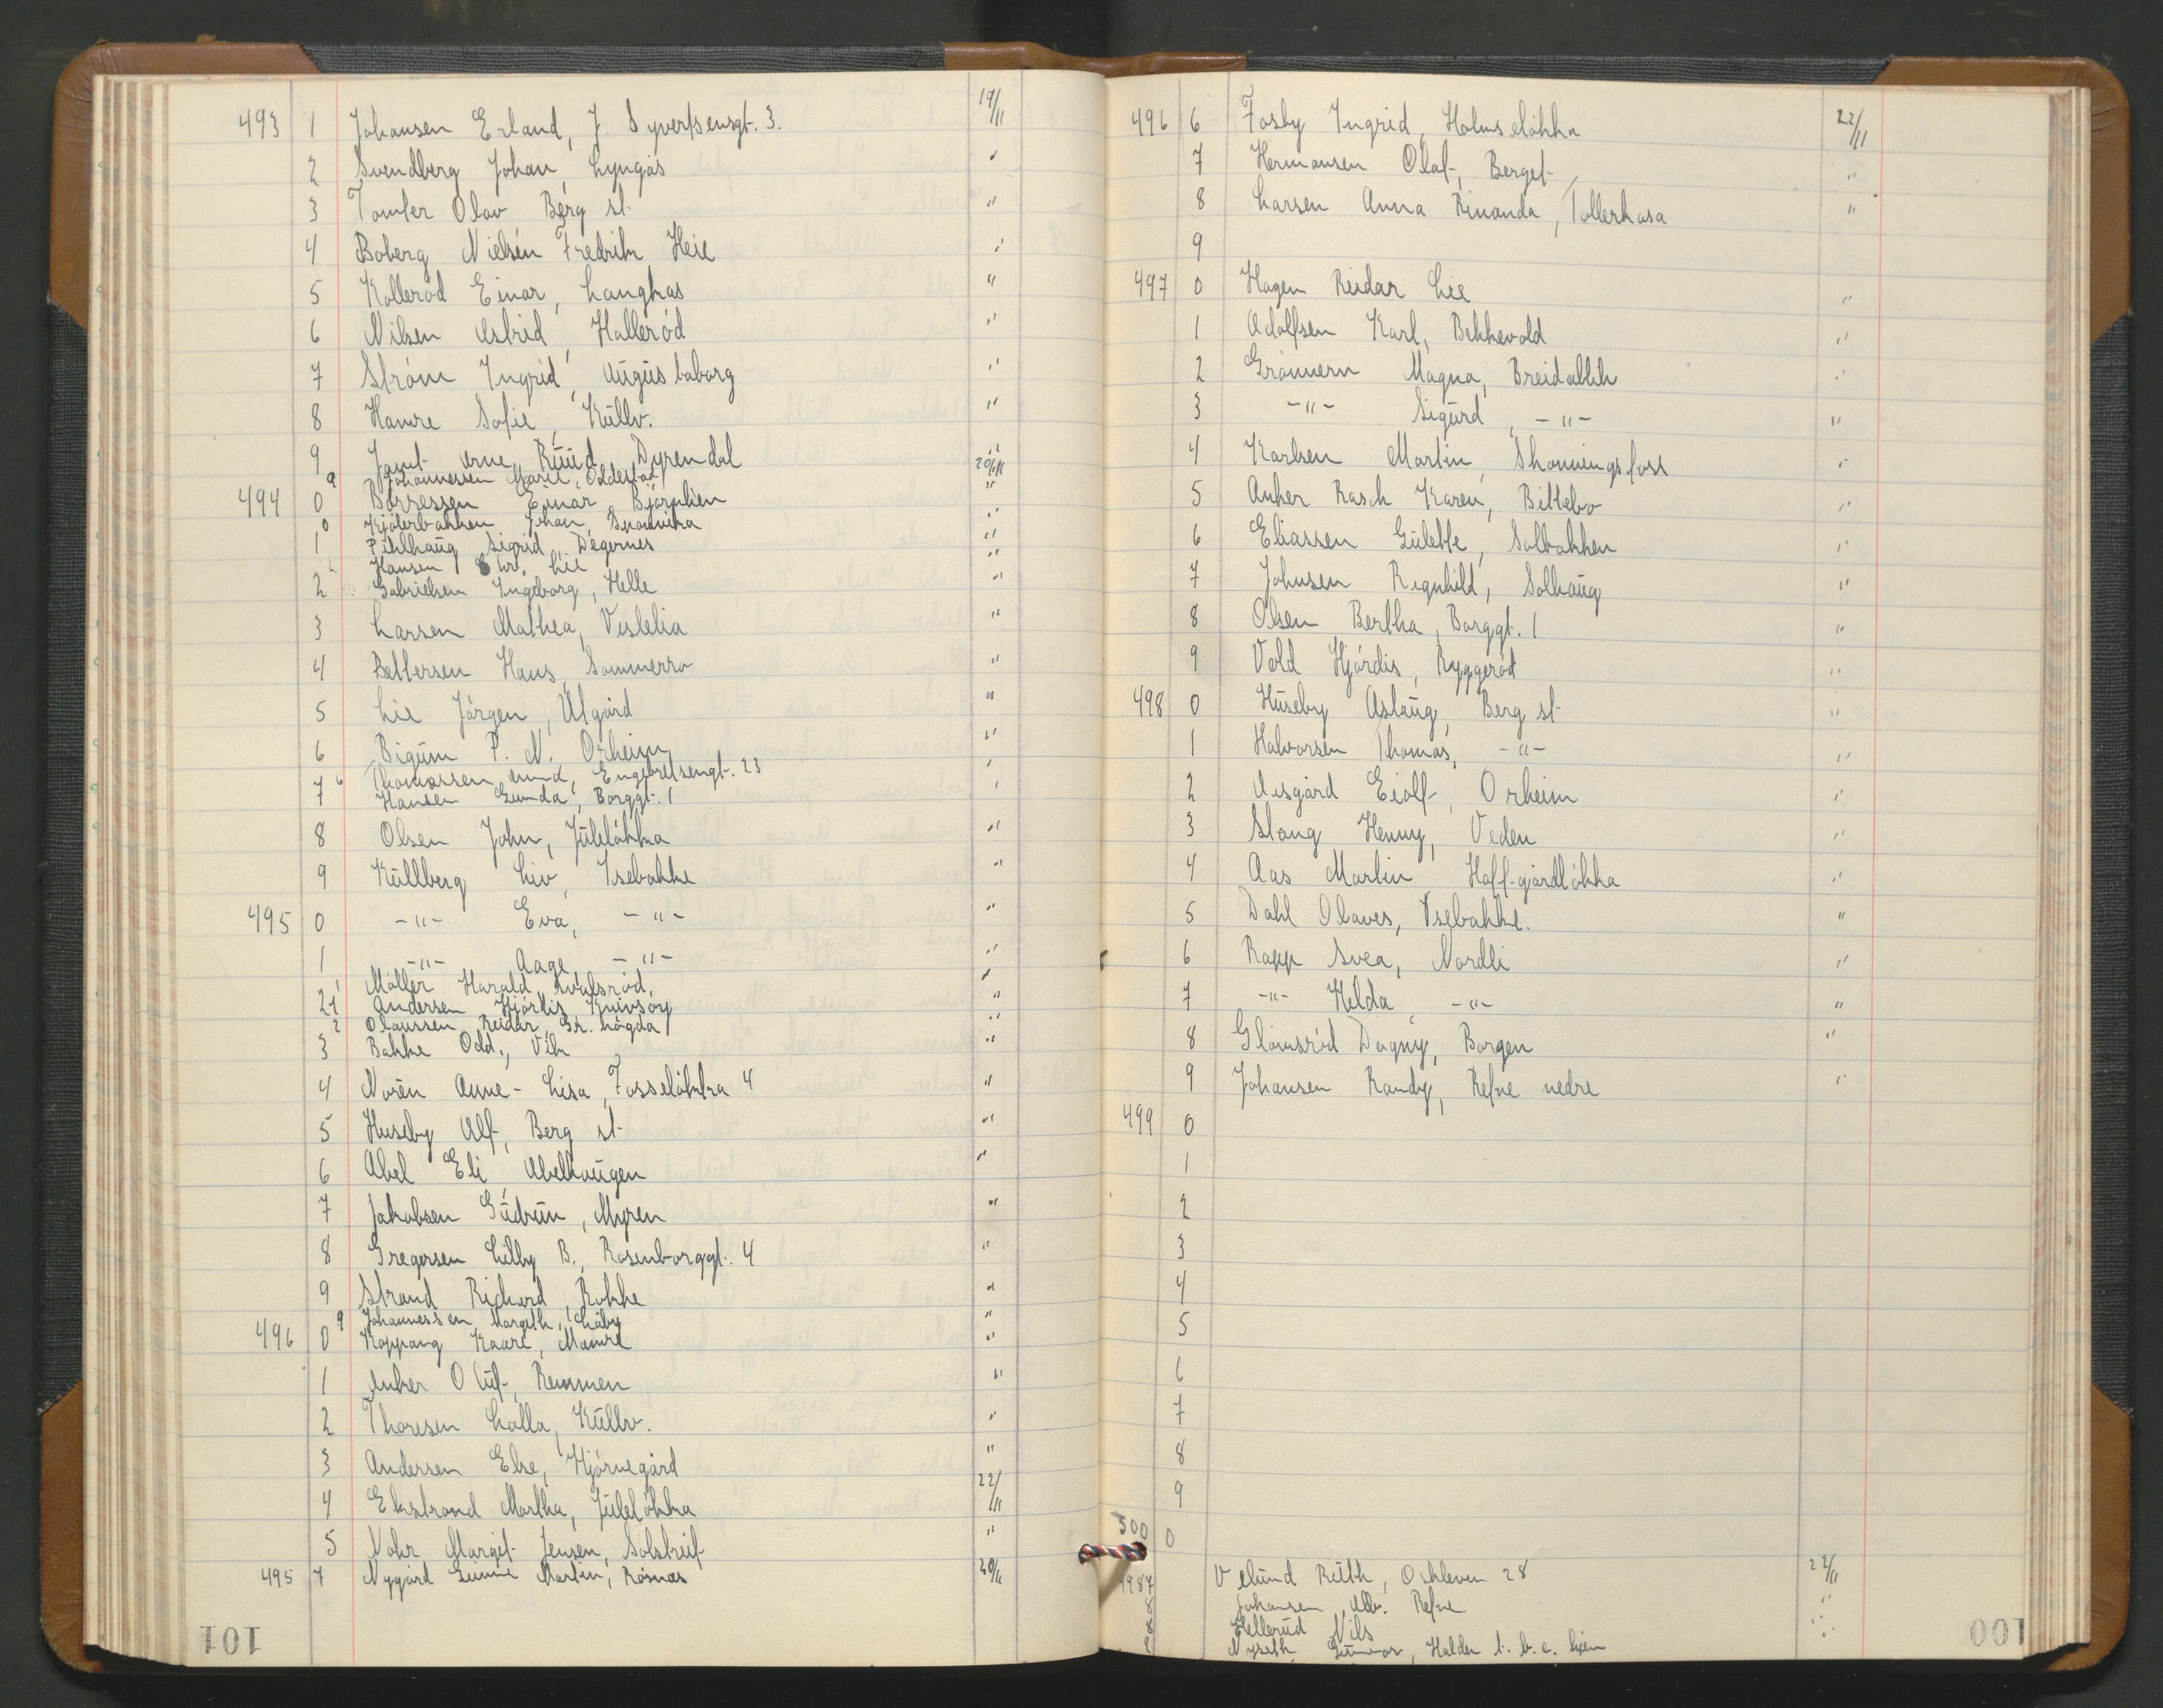 493 1 Johansen Erland, J. Syversensgt. 3. 19/11
2 Svendberg Johan, Lyngås "
3 Tomter Olav Berg st. "
4 Boberg Nielsén Fredrik Heie "
5 Kolleród Einar, Langkas "
6 Nilsen Astrid, Halleród "
7 Stróm Ingrid, Augustaborg "
8 Hamre Sofie, Kullv. "
9 Arne Ruud, Dyrendal "
9 Johannessen Marie, 20/11
494 0 Bórressen Einar, Bjórnlien "
0 Johan, "
1 Pihlhaug Sigrid, Degernes "
Hansen Lie "
2 Gabrielsen Ingeborg, Helle "
3 Larsen Mathea, Veslelia "
4 Pettersen Hans, Sommerro "
5 Lie Jórgen, Ulgård "
6 Bigum P. N. Orheim "
6 Thomassen Engebretsengt. 23 "
7 Hansen Gunda, Borggt. 1
8 Olsen John, Julelókka "
9 Kullberg Liv, Isebakke "
495 0 -"- Eva, -"- "
1 -"- Aage, -"- "
1 Móller Harald, "
21 Andersen Hjórdis, Knivsóy "
2 Olaussen Reidar, Gr. hógda "
3 Bakke Odd, Vik "
4 Norén Anne-Lisa, Fosselókka 4 "
5 Huseby Alf, Berg st. "
6 Abel Eli, Abelhaugen "
7 Jakobsen Gudrun, Myren "
8 Gregersen Lilly B., Rosenborggt. 4 "
9 Strand Richard, Rokke "
9 Johannessen Margith, Låby "
496 0 Koppang Kaare, Mamre "
1 Anker Oluf, Remmen "
2 Thoresen Lalla, Kullv. "
3 Andersen Else, Hjórnegård "
4 Ekstrand Martha, Julelókka 22/11
5 Nohr Margit Jensen, "
495 7 Nygård Gunnar Martin, Rósnæs 20/11
101
496 6 Fosby Ingrid, Holmselókka 22/11
7 Hermansen Olaf, Berget "
8 Larsen Anna Rinanda, Tollerkasa "
9
497 0 Hagen Reidar Lie "
1 Adolfsen Karl, Bekkevold "
2 Grónnern Magna, Breidablik "
3 -"- Sigurd, -"- "
4 Karlsen Martin, Skonningsfoss "
5 Anker Rasch Karen, Bittebo "
6 Eliassen Gulette, Solbakken "
7 Johnsen Ragnhild, Solhaug "
8 Olsen Bertha, Borggt. 1 "
9 Vold Hjórdis, Ryggeród "
498 0 Huseby Aslaug, Berg st "
1 Halvorsen Thomas, -"- "
2 Aisgård Eiolf, Orheim "
3 Stang Henny, Veden "
4 Aas Martin Hoff-gårdlókka "
5 Dahl Olaves, Isebakke. "
6 Rapp Svea, Nordli "
7 -"- Helda, -"- "
8 Glómsród Dagny, Borgen "
9 Johansen Randy, Refne nedre "
499 0
1
2
3
4
5
6
7
8
9
500 0
4987 Velund Ruth, Oskleven 28 22/11
8 Johansen Alv. Refne "
8 Hellerud Nils "
8 Nyseth Gunvor, Halden t.b.c. hjem "
100